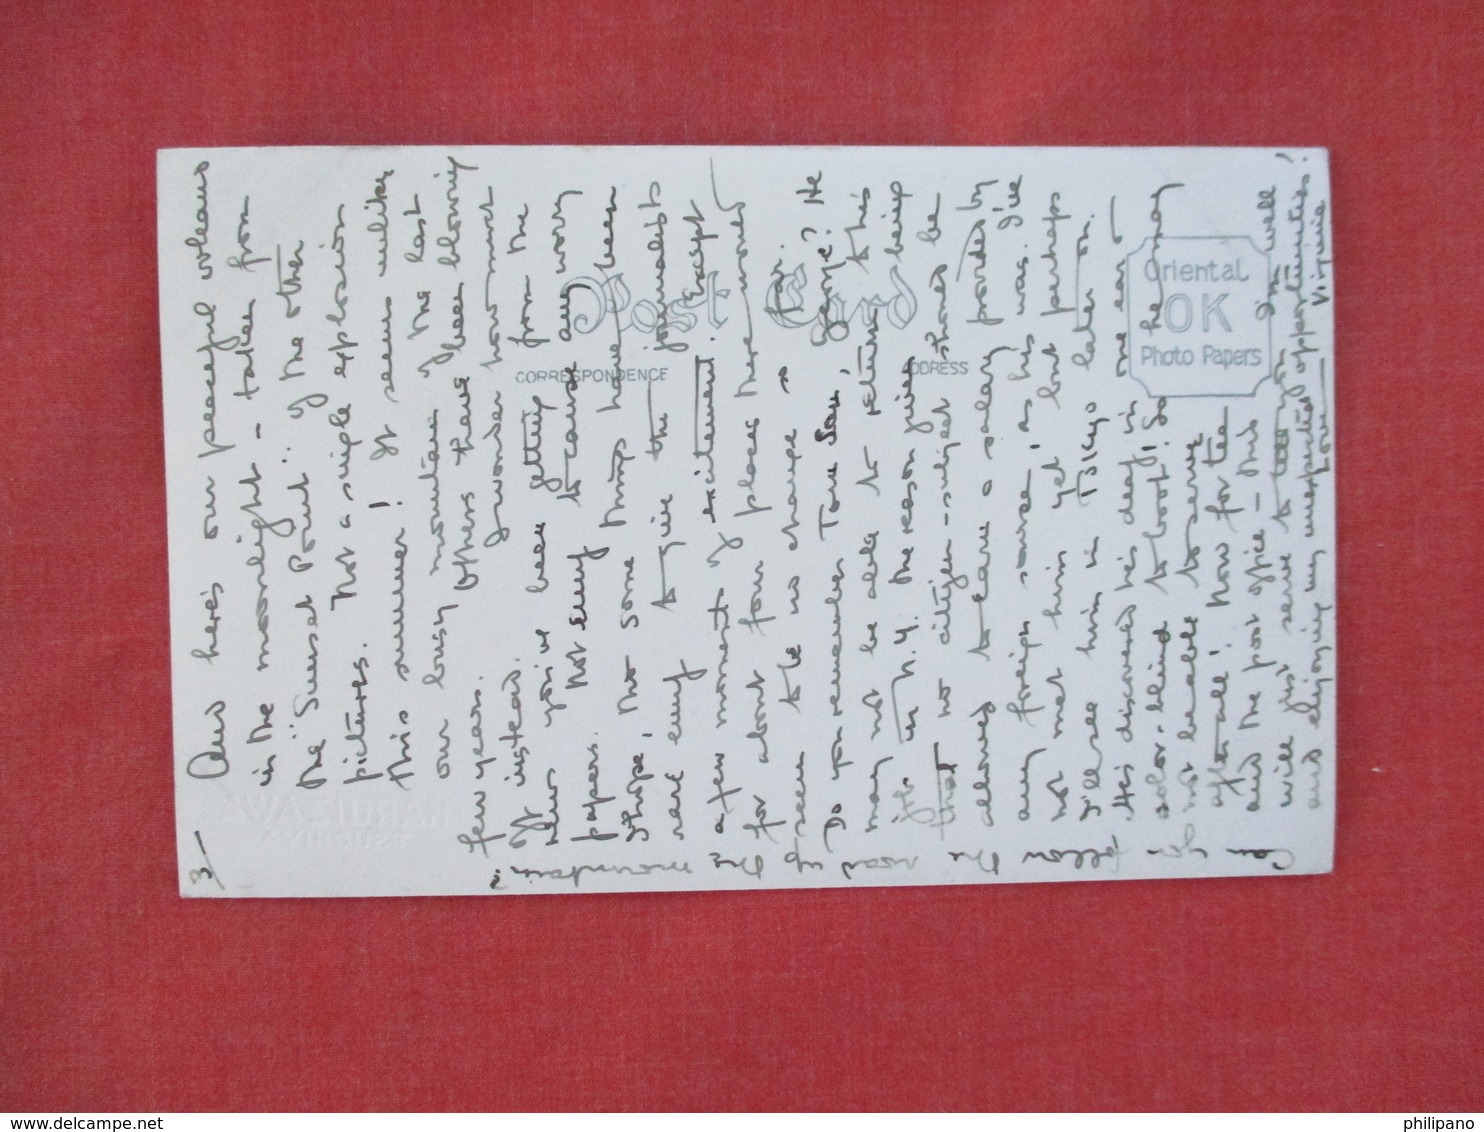 3/-
And here's our peaceful volcano
in the moonlight - taken from
the "Sunset Point" of the other
pictures. Not a single explosion
this summer! It seems unlike
our busy mountain of the last
few years. Others have been blowing
it instead. I wonder how much
news you've been getting from the
papers. Not enough to cause any worry
I hope, tho some things have been
real enough to give the journalists
a few moments of excitement. Except
for about four places there would
seem to be no change so far.
Do you remember Tom Sou, George? He
may not be able to return to his
in N.Y. the reason given being
that no citizen-subject should be
allowed to earn a salary provided by
any foreign source, as his was. I've
not met him yet but perhaps
I'll see him in Tokyo later on.
He's discovered he's deaf in one ear &
color-blind to boot! So he may
not be able to serve
after all! Now for tea
and the post office - this
will just serve to you I'm well
and enjoying my unexpected opportunities!
Love - Virginia
Can you follow the road up the mountain?
POST CARD
CORRESPONDENCE
ADDRESS
Oriental
OK
Photo Papers
KARUIZAWA
TSUCHIYA
http://www.delcampe.net
philipano